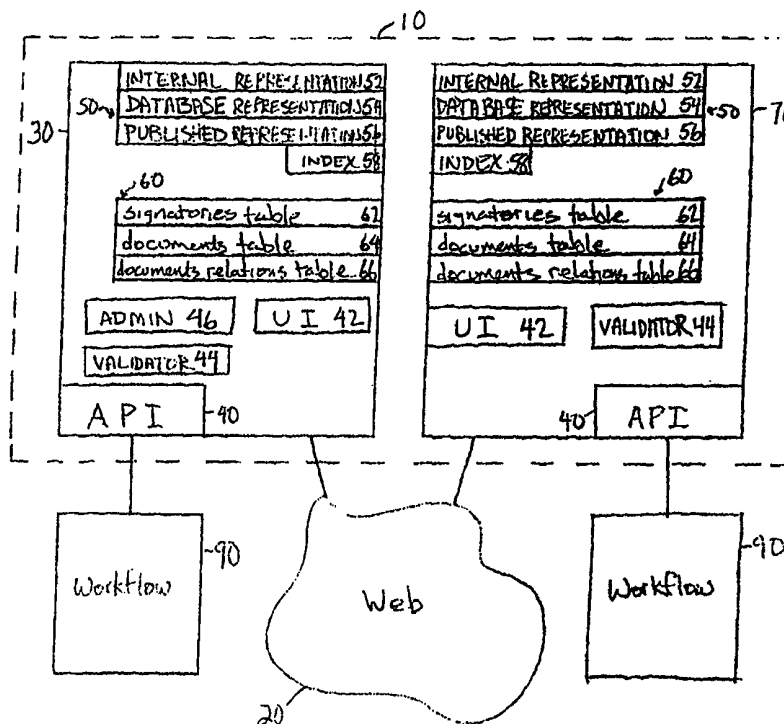 10
INTERNAL REPRESENTATION 52
50 DATABASE REPRESENTATION 54
30 PUBLISHED REPRESENTATION 56
INDEX 58
60
signatories table 62
documents table 64
documents relations table 66
ADMIN 46 UI 42
VALIDATOR 44
API 40
INTERNAL REPRESENTATION 52
DATABASE REPRESENTATION 54 50
PUBLISHED REPRESENTATION 56
INDEX 58
60
signatories table 62
documents table 64
documents relations table 66
UI 42 VALIDATOR 44
40 API
Workflow 90
Web
20
Workflow 90